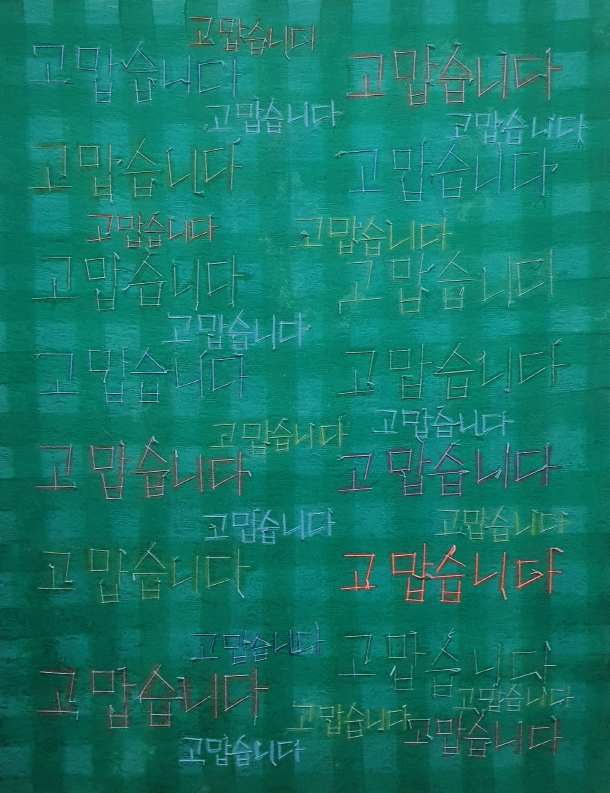 고맙습니다
고맙습니다
고맙습니다
고맙습니다
고맙습니다
고맙습니다
고맙습니다
고맙습니다
고맙습니다
고맙습니다
고맙습니다
고맙습니다
고맙습니다
고맙습니다
고맙습니다
고맙습니다
고맙습니다
고맙습니다
고맙습니다
고맙습니다
고맙습니다
고맙습니다
고맙습니다
고맙습니다
고맙습니다
고맙습니다
고맙습니다
고맙습니다
고맙습니다